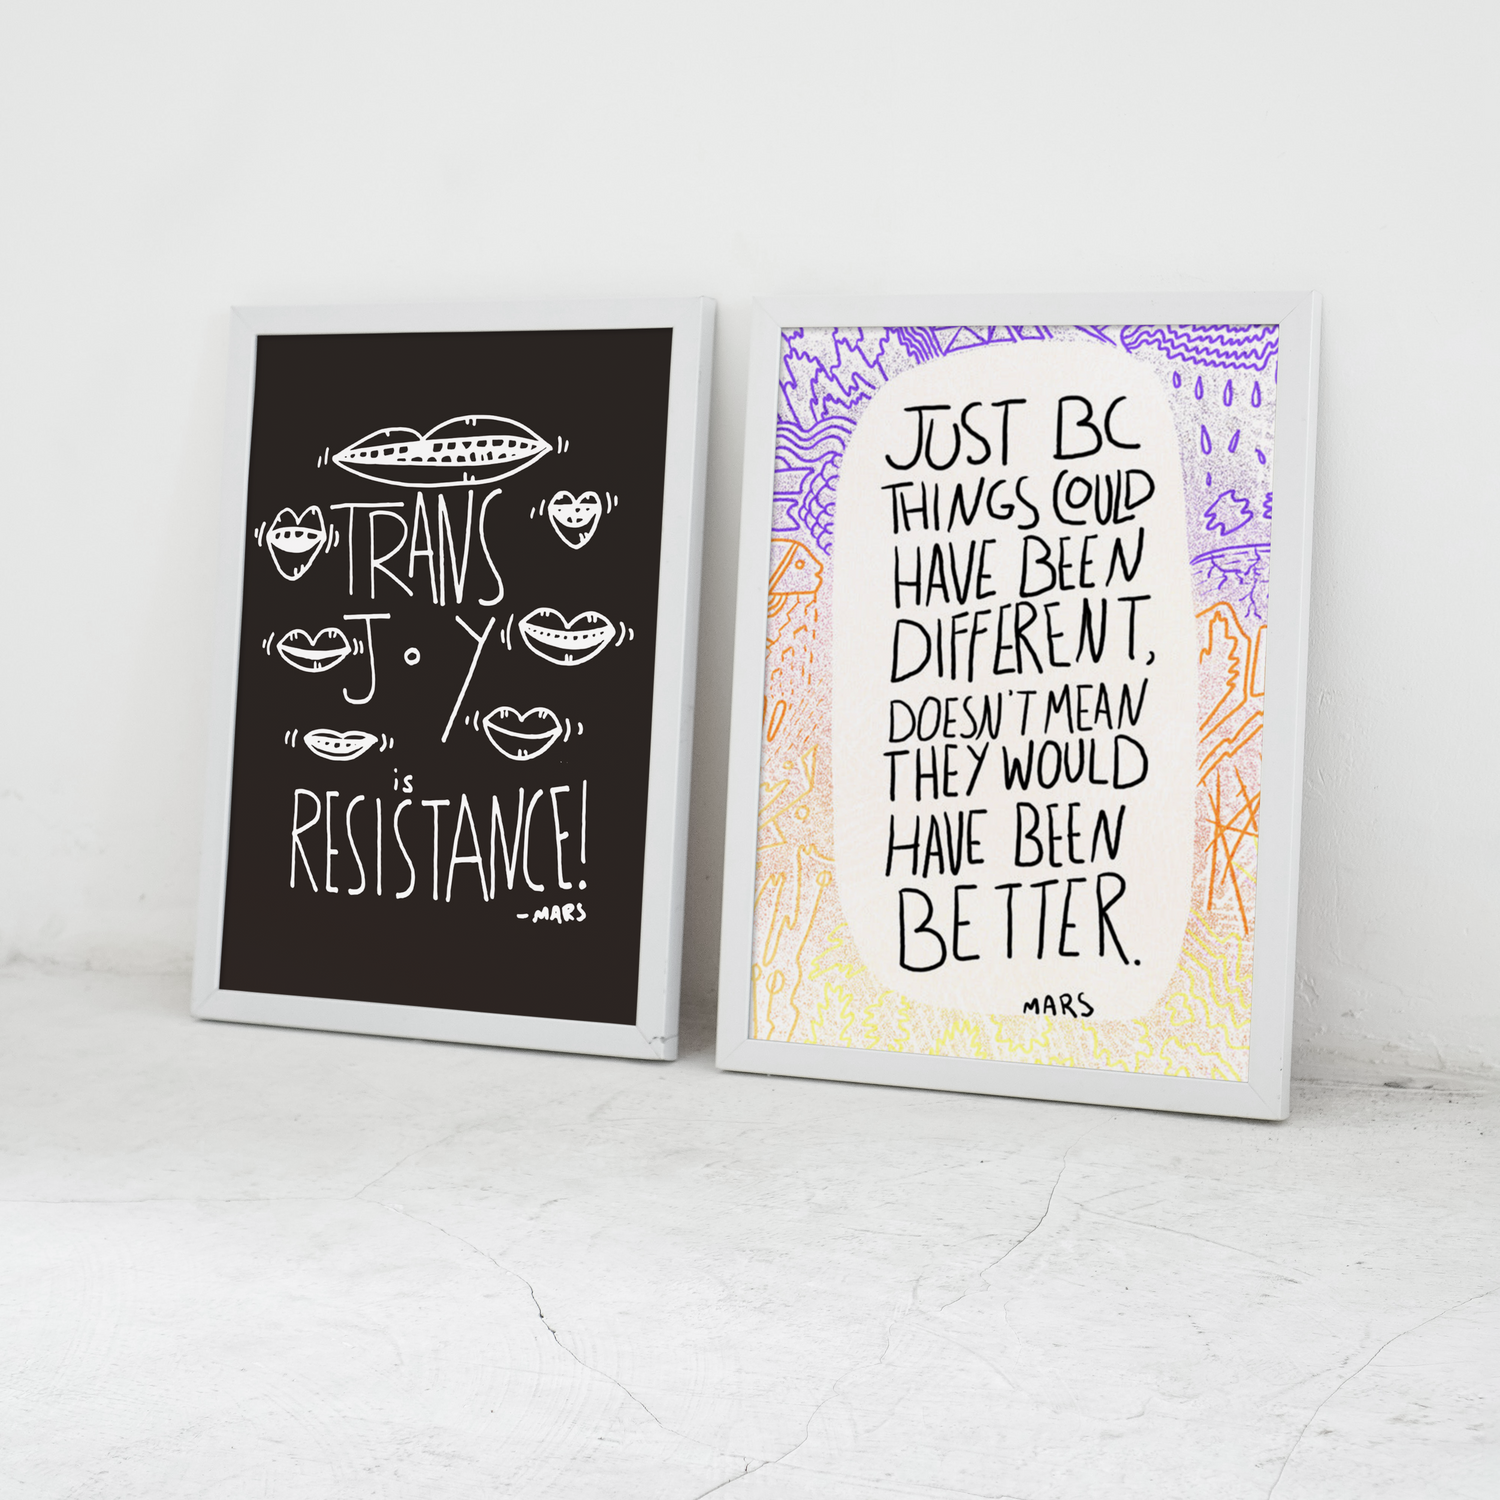 TRANS
JOY
is
RESISTANCE!
-MARS
JUST BC
THINGS COULD
HAVE BEEN
DIFFERENT,
DOESN'T MEAN
THEY WOULD
HAVE BEEN
BETTER.
MARS